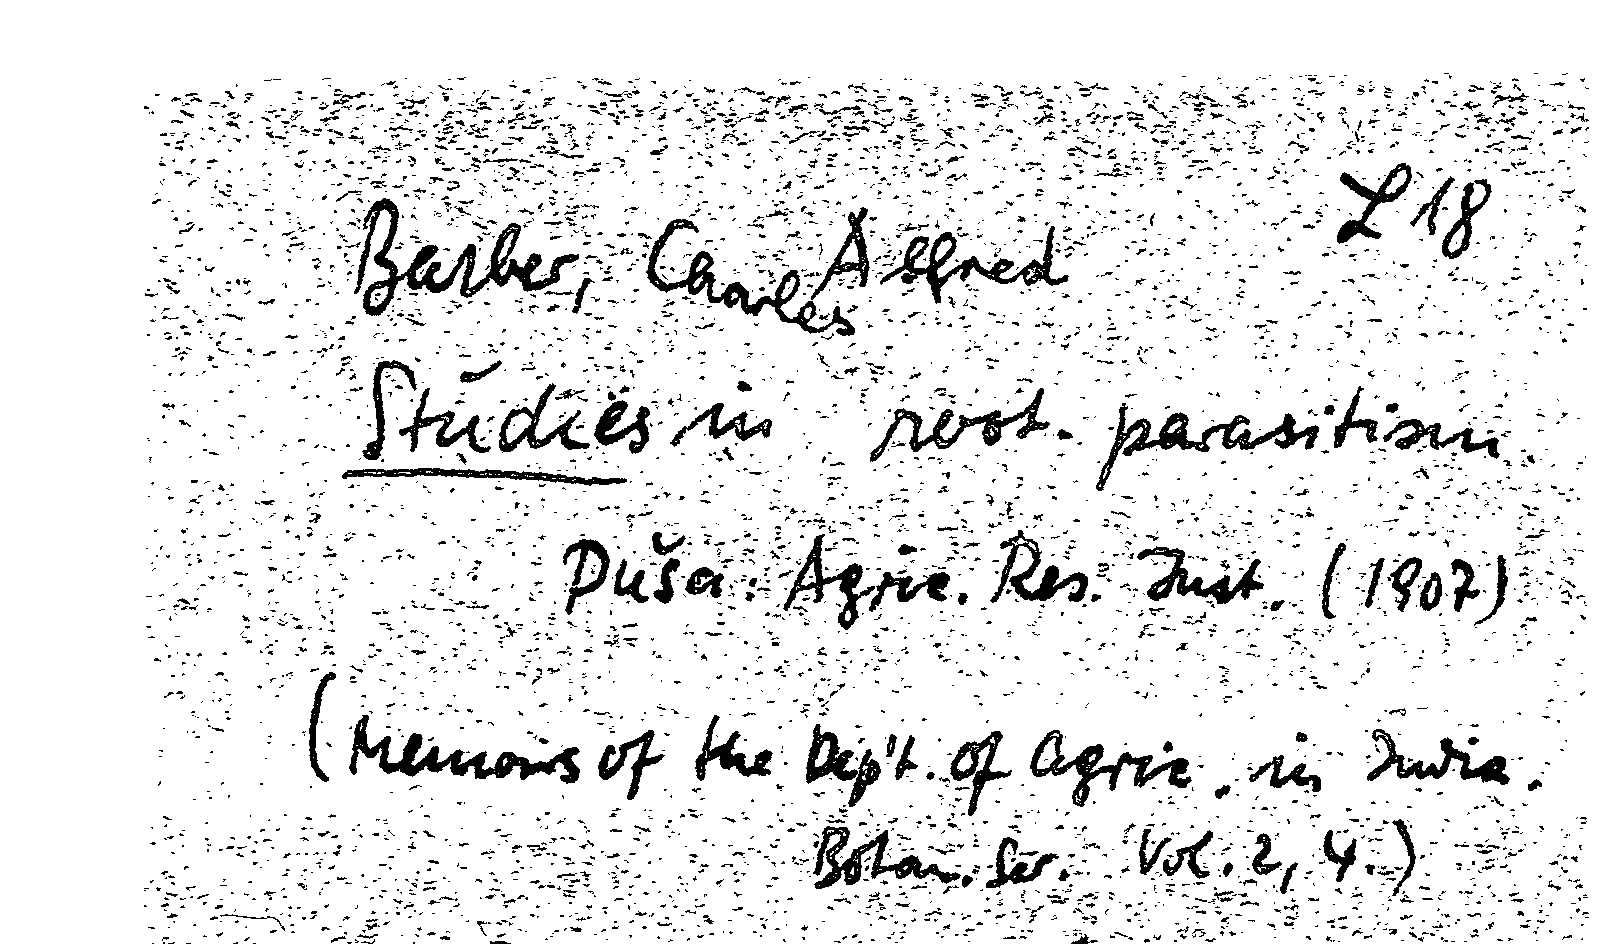 L 18
Barber, Charles Alfred
Studies in root-parasitism
Puša: Agric. Res. Inst. (1907)
(Memoirs of the Dep't. of Agric. in India.
Botan. Ser. Vol. 2, 4.)